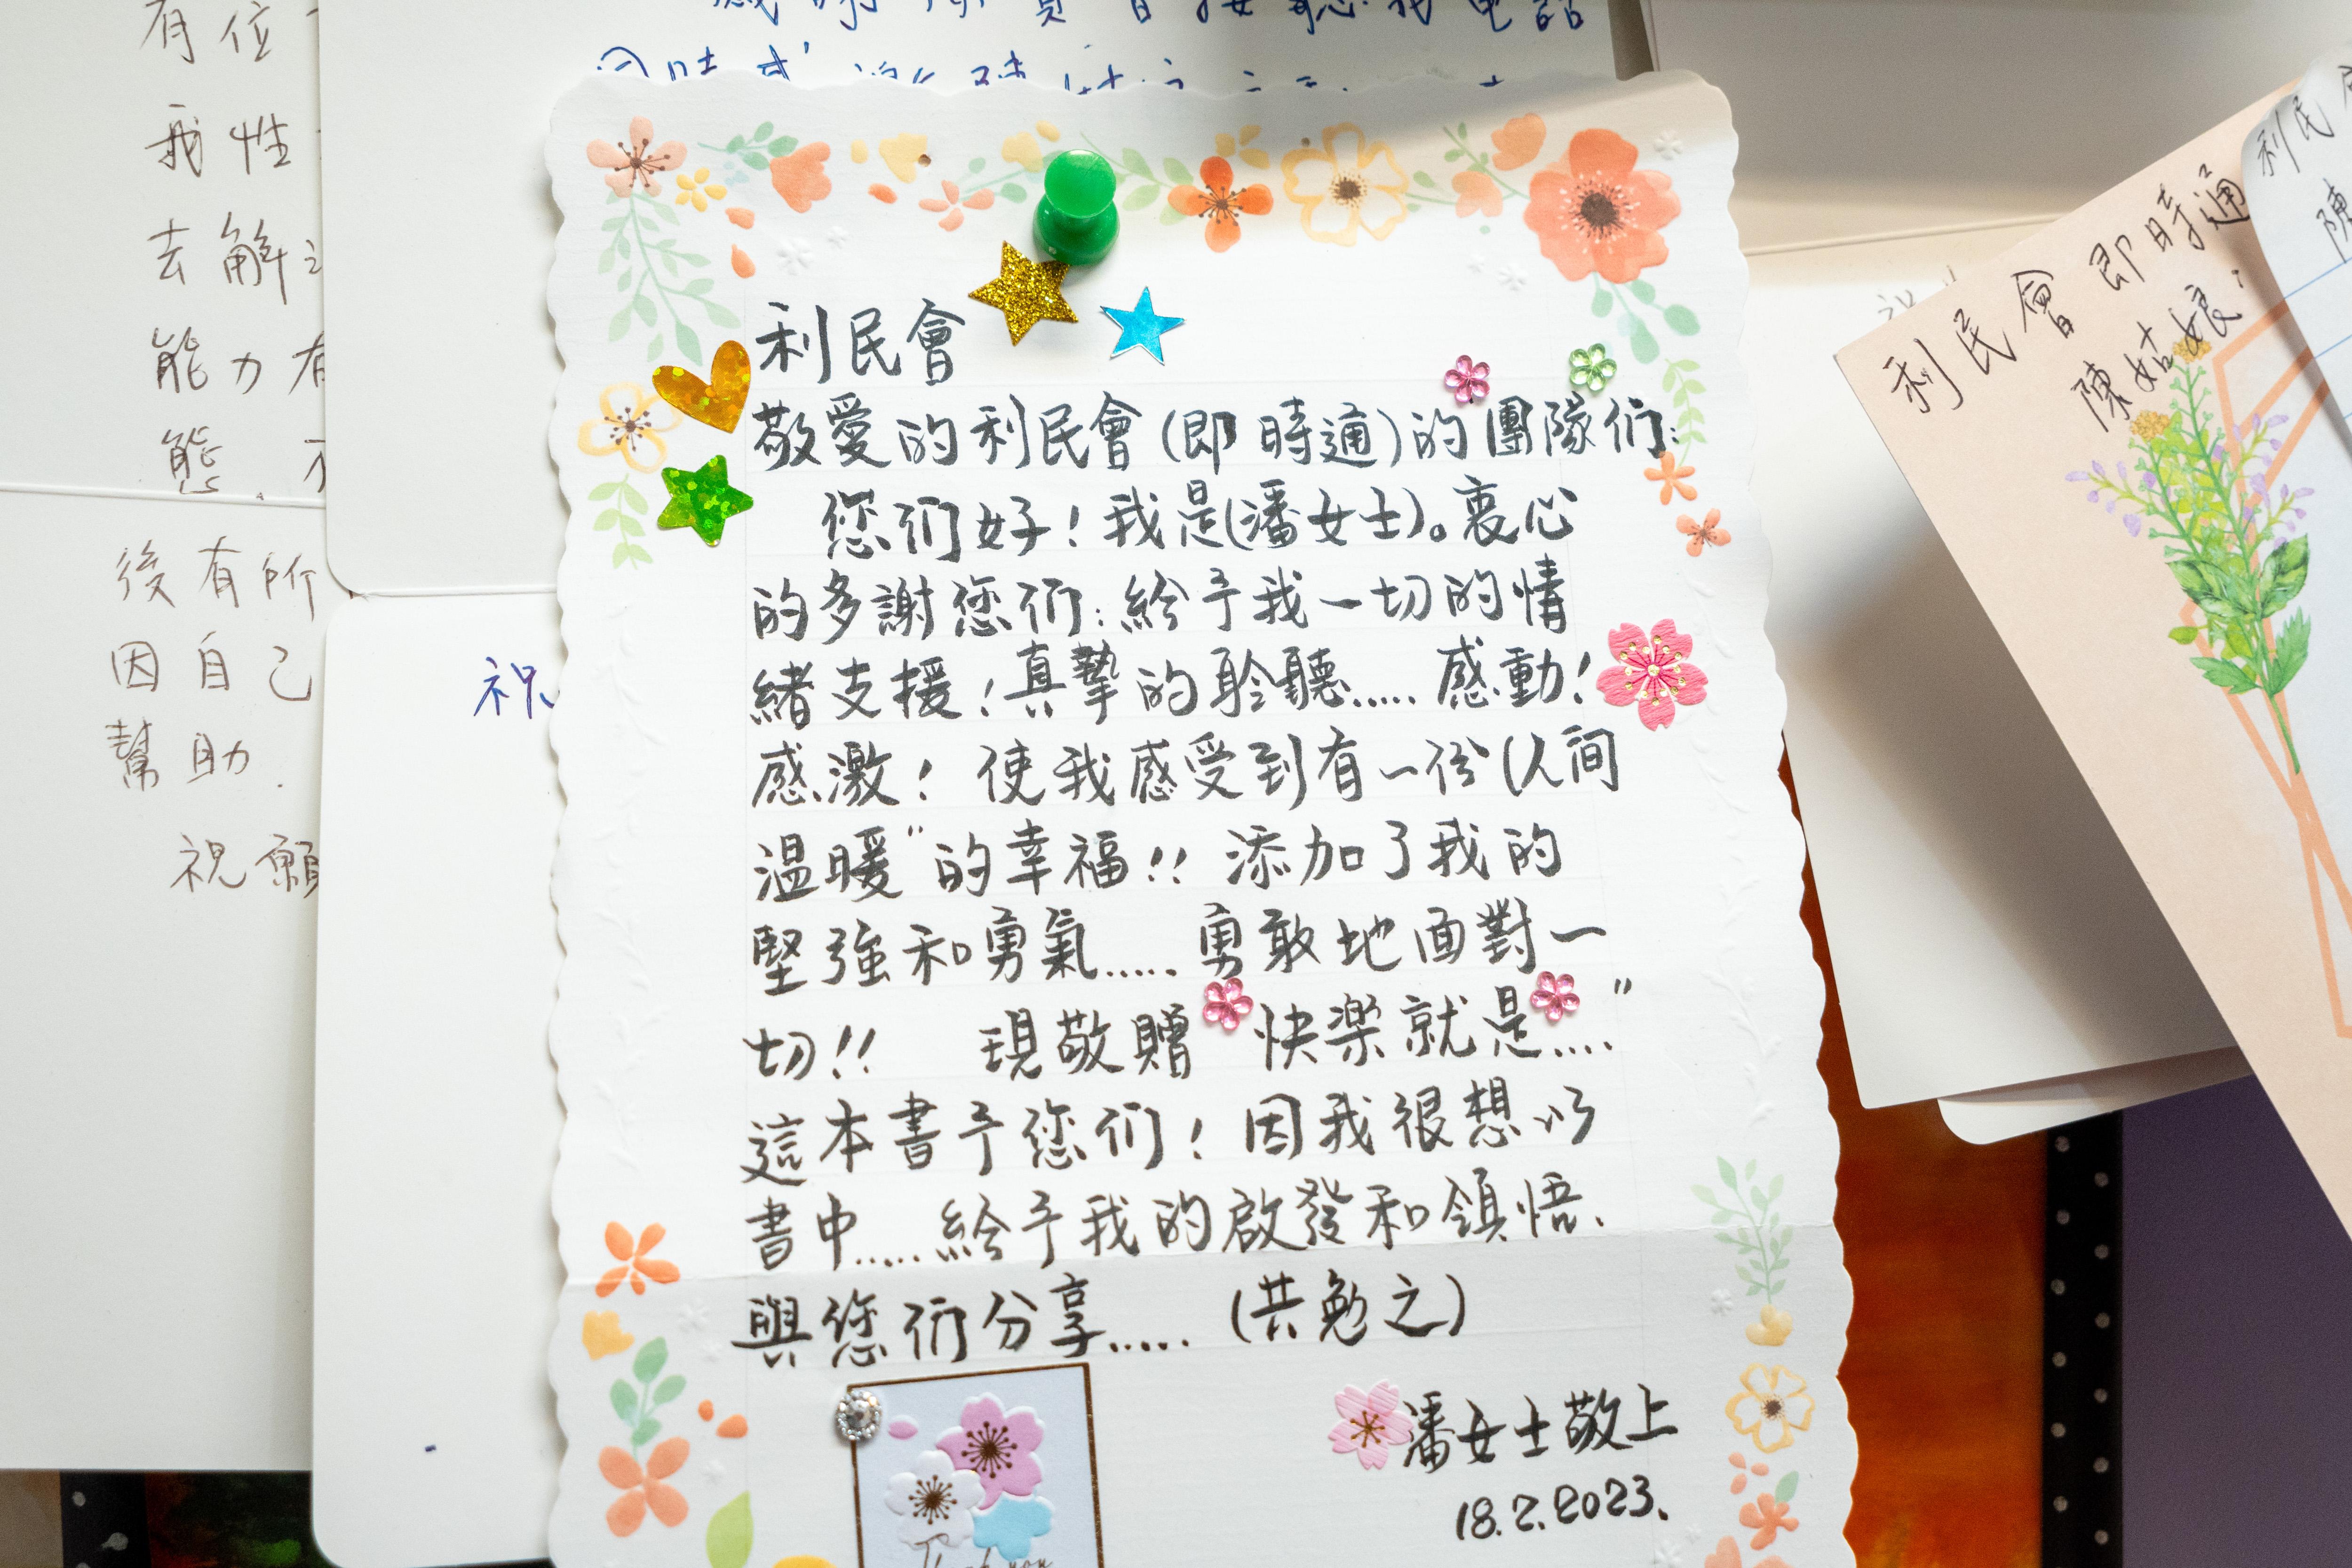 有位
我性
去解
能力有
態.
後有所
因自己
幫助.
祝願
祝
利民會
敬愛的利民會(即時通)的團隊们:
您们好!我是(潘女士)。衷心
的多謝您们:給予我一切的情
緒支援!真摯的聆聽.....感動!
感激! 使我感受到有一份(人间
温暖"的幸福!! 添加了我的
堅強和勇氣.....勇敢地面對一
切!! 現敬贈 快楽就是...."
這本書予您们!因我很想以
書中.....給予我的啟發和領悟.
與您们分享.....(共勉之)
潘女士敬上
18.2.2023.
Thank you
利民會即時通
陳姑娘:
利民
陳